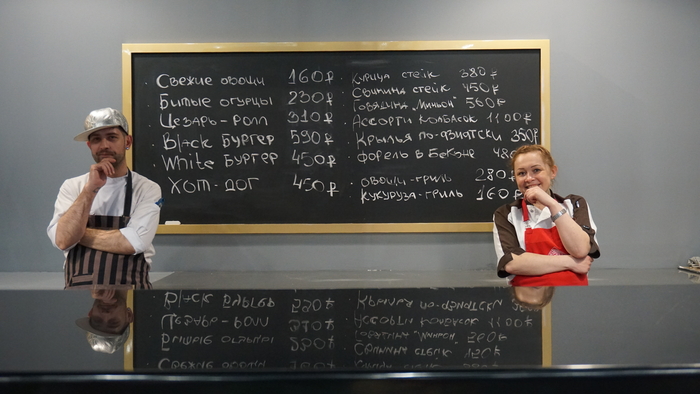 Свежие овощи 160₽
Битые огурцы 230₽
Цезарь-ролл 310₽
Black бургер 590₽
White бургер 450₽
Хот-дог 450₽
Курица стейк 380₽
Свинина стейк 450₽
Говядина "Миньон" 560₽
Ассорти колбасок 1100₽
Крылья по-азиатски 350₽
Форель в беконе 480
Овощи-гриль 280₽
Кукуруза-гриль 160₽